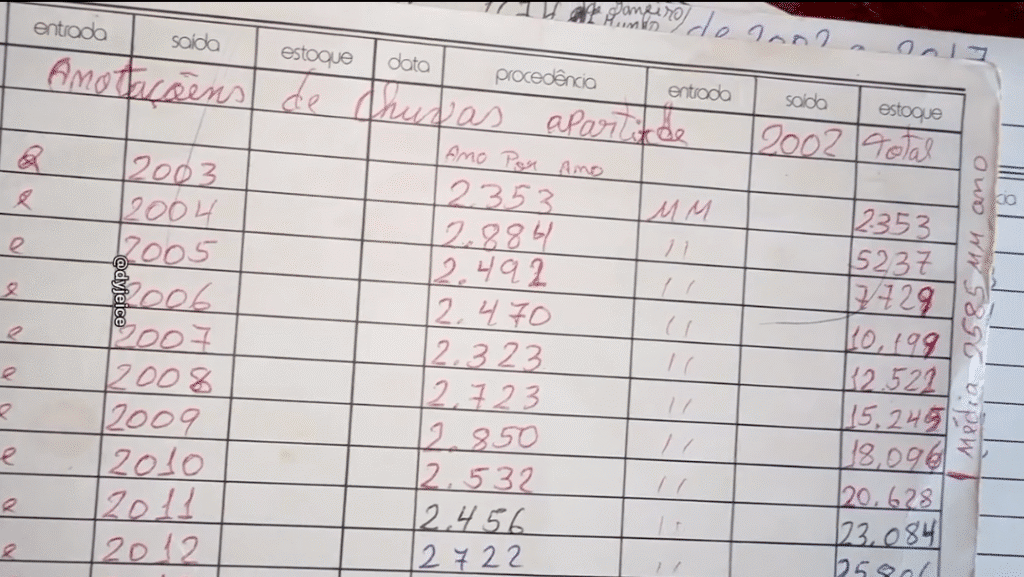 de 2002 a 2017
entrada saída estoque data procedência entrada saída estoque
Anotaçoēns de chuvas apartir de 2002 Total
Ano Por Ano
e 2003 2.353 MM 2353
e 2004 2.884 11 5237
e 2005 2.492 11 7729
e 2006 2.470 11 10,199
e 2007 2.323 11 12.522
e 2008 2.723 11 15.245
e 2009 2.850 11 18,096
e 2010 2.532 11 20.628
e 2011 2.456 11 23.084
e 2012 2722 11 25806
Média 2585 MM ano
@dyjeice